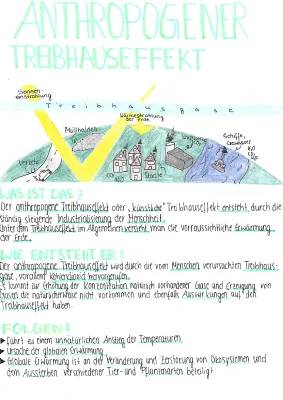 ANTHROPOGENER
TREIBHAUSEFFEKT
Sonnen-
einstrahlung
Treibhausgase
Wärmestrahlung
der Erde
Müllhalden
Schiffe,
Verkehr
Städte
WAS IST DAS?
Der anthropogene Treibhauseffekt oder „künstliche" Treibhauseffekt entsteht durch die
ständig steigende Industrialisierung der Menschheit.
Unter dem Treibhauseffekt im Allgemeinen versteht man die voraussichtliche Erwärmung
der Erde.
WIE ENTSTEHT ER?
Der anthropogene Treibhauseffekt wird durch die vom Menschen verursachten Treibhaus-
gase, vorallem Kohlendioxid hervorgerufen.
Es kommt zur Erhöhung der Konzentration natürlich vorhandener Gase und Erzeugung von
Gasen die naturüblicherweise nicht vorkommen und ebenfalls Auswirkungen auf den
Treibhauseffekt haben.
FOLGEN!
▸ Führt zu einem unnatürlichen Anstieg der Temperaturen
▸ Ursache der globalen Erwärmung
▸ Globale Erwärmung ist an der Veränderung und Zerstörung von Ökosystemen und
dem Aussterben verschiedener Tier- und Pflanzenarten beteiligt